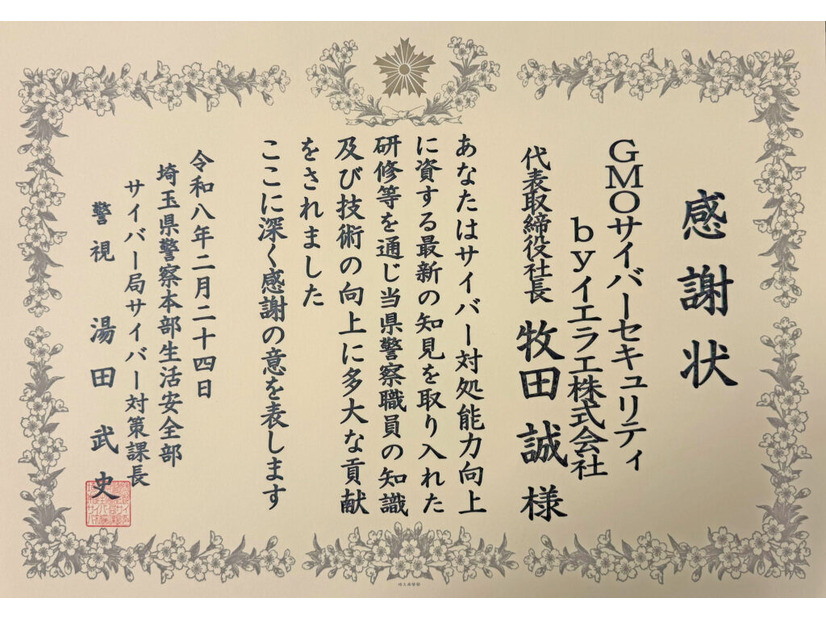 感謝状
GMOサイバーセキュリティ
byイエラエ株式会社
代表取締役社長 牧田誠 様
あなたはサイバー対処能力向上
に資する最新の知見を取り入れた
研修等を通じ当県警察職員の知識
及び技術の向上に多大な貢献
をされました
ここに深く感謝の意を表します
令和八年二月二十四日
埼玉県警察本部生活安全部
サイバー局サイバー対策課長
警視 湯田武史